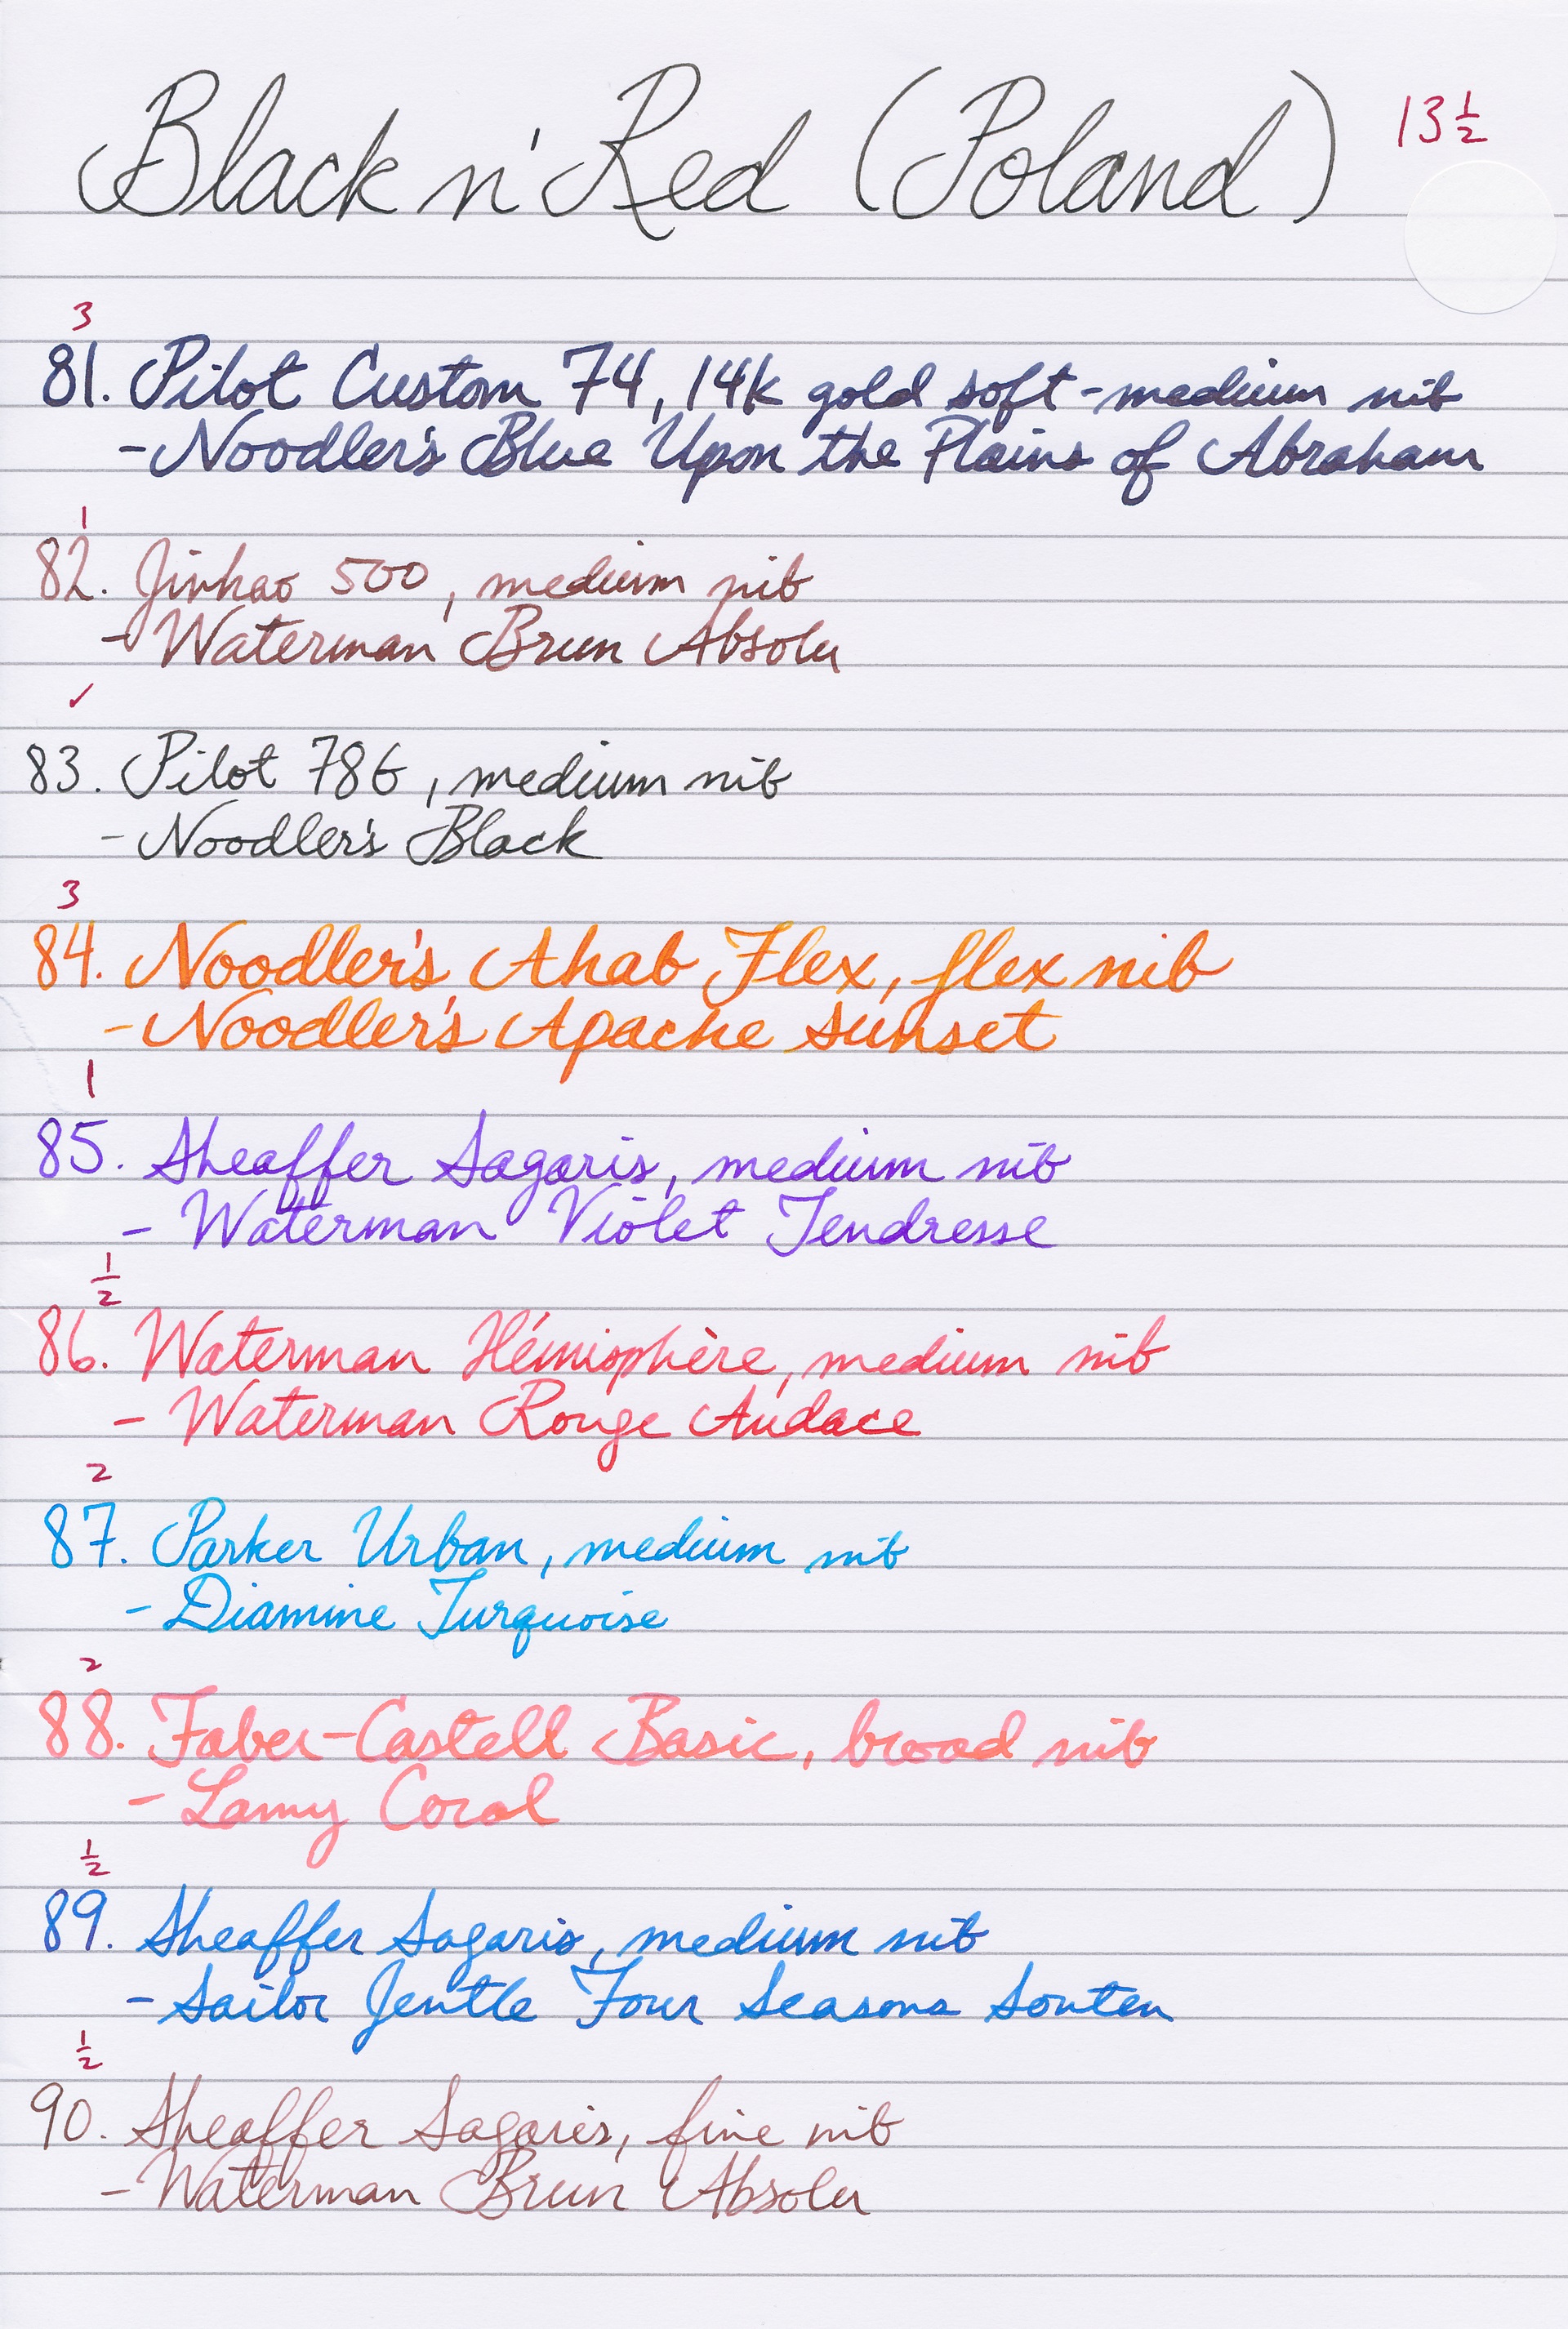 Black n' Red (Poland) 13 1/2
3
81. Pilot Custom 74, 14k gold soft-medium nib
- Noodler's Blue Upon the Plains of Abraham
1
82. Jinhao 500, medium nib
- Waterman Brun Absolu
✓
83. Pilot 78G, medium nib
- Noodler's Black
3
84. Noodler's Ahab Flex, flex nib
- Noodler's Apache Sunset
1
85. Sheaffer Sagaris, medium nib
- Waterman Violet Tendresse
1/2
86. Waterman Hémisphère, medium nib
- Waterman Rouge Audace
2
87. Parker Urban, medium nib
- Diamine Turquoise
2
88. Faber-Castell Basic, broad nib
- Lamy Coral
1/2
89. Sheaffer Sagaris, medium nib
- Sailor Jentle Four Seasons Souten
1/2
90. Sheaffer Sagaris, fine nib
- Waterman Brun Absolu